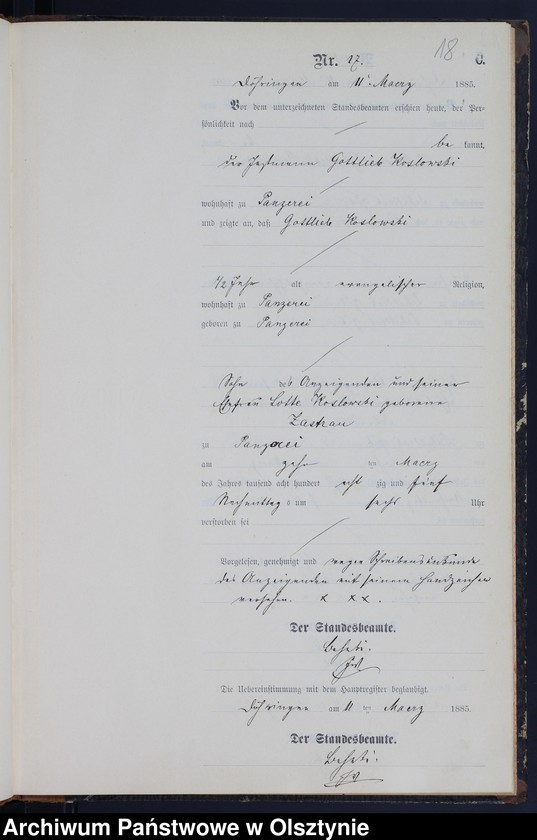 18
Nr. 17. C.
Döhringen am 11ten Maerz 1885.
Vor dem unterzeneten Standesbeamten erschien heute, der Per-
sönlichkeit nach
be kannt,
der Instmann Gottlieb Koslowski
wohnhaft zu Panzerei
und zeigte an, daß Gottlieb Koslowski
1/2 Jahr alt evangelischer Religion,
wohnhaft zu Panzerei
geboren zu Panzerei
Sohn des Anzeigenden und seiner
Ehefrau Lotte Koslowski geborene
Zastrau
zu Panzerei
am zehn ten Maerz
des Jahres tausend acht hundert acht zig und fünf
Nachmittag s um sechs Uhr
verstorben sei
Vorgelesen, genehmigt und wegen Schreibensunkunde
des Anzeigenden mit seinem Handzeichen
versehen. x x x.
Der Standesbeamte.
Die Uebereinstimmung mit dem Hauptregister beglaubigt.
Döhringen am 11 ten Maerz 1885.
Der Standesbeamte.
Archiwum Państwowe w Olsztynie